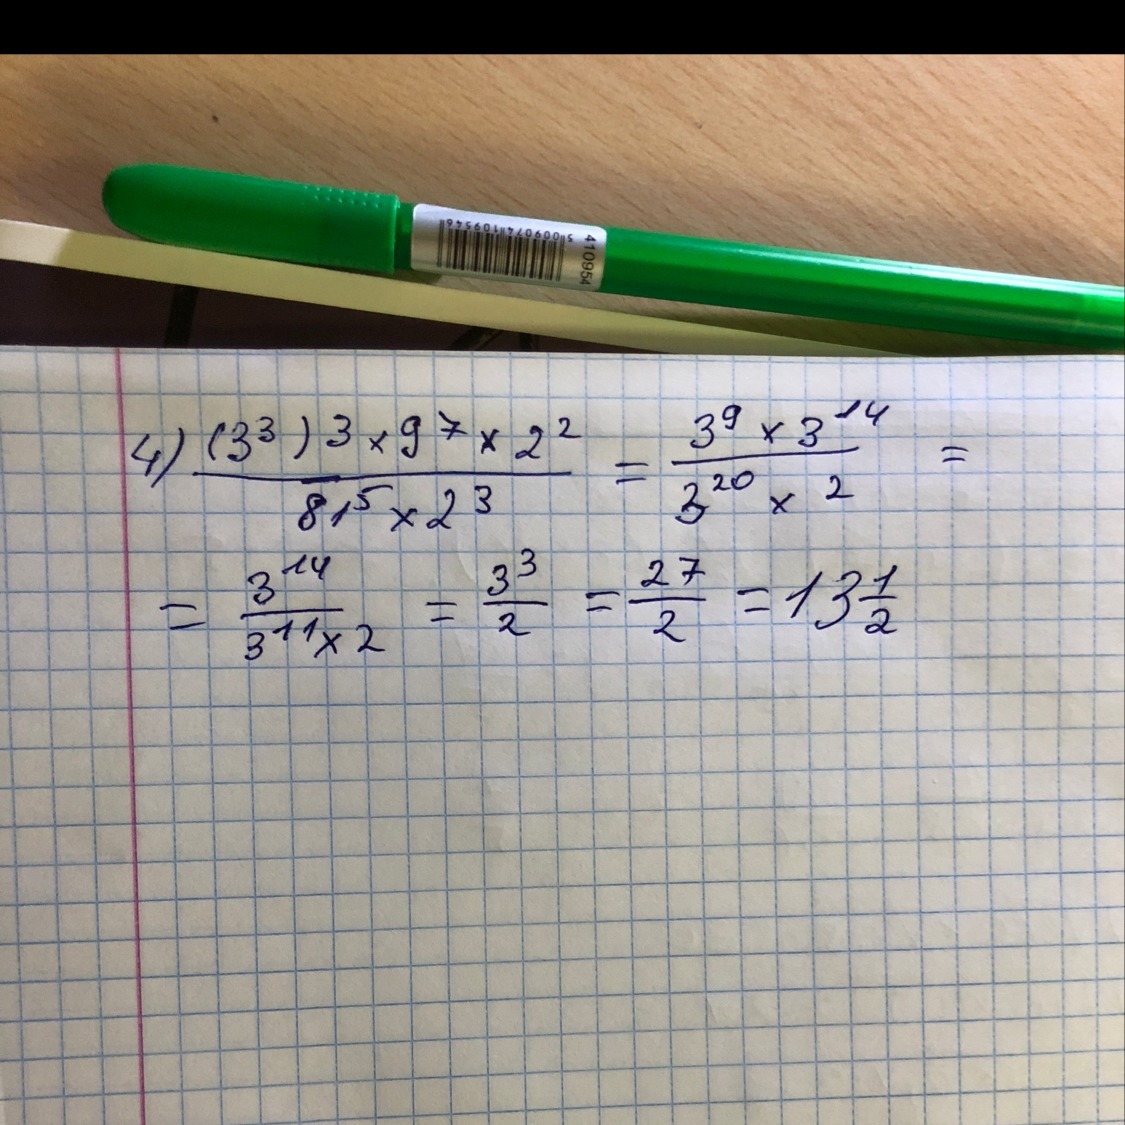 410954
5 009074 109546
4) (3³)³ × 9⁷ × 2² / 81⁵ × 2³ = 3⁹ × 3¹⁴ / 3²⁰ × 2 =
= 3¹⁴ / 3¹¹ × 2 = 3³ / 2 = 27 / 2 = 13 1/2